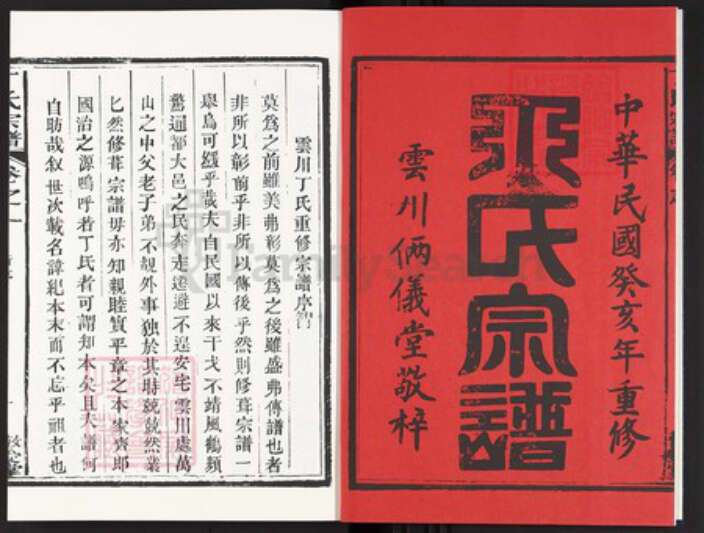 中華民國癸亥年重修
氏宗譜
雲川俩儀堂敬梓
雲川丁氏重修宗譜序
莫為之前雖美弗彰莫為之後雖盛弗傳譜也者
非所以彰前乎非所以傳後乎然則修葺宗譜一
舉烏可緩乎哉夫自民國以來干戈不靖風鶴頻
驚通都大邑之民奔走遠避不遑安宅雲川處萬
山之中父老子弟不覩外事獨於其時兢兢然業
匕然修葺宗譜毋亦知親睦實平章之本家齊即
國治之源嗚呼若丁氏者可謂知本矣且夫譜何
自昉哉叙世次載名諱紀本末而不忘乎祖者也
氏宗譜